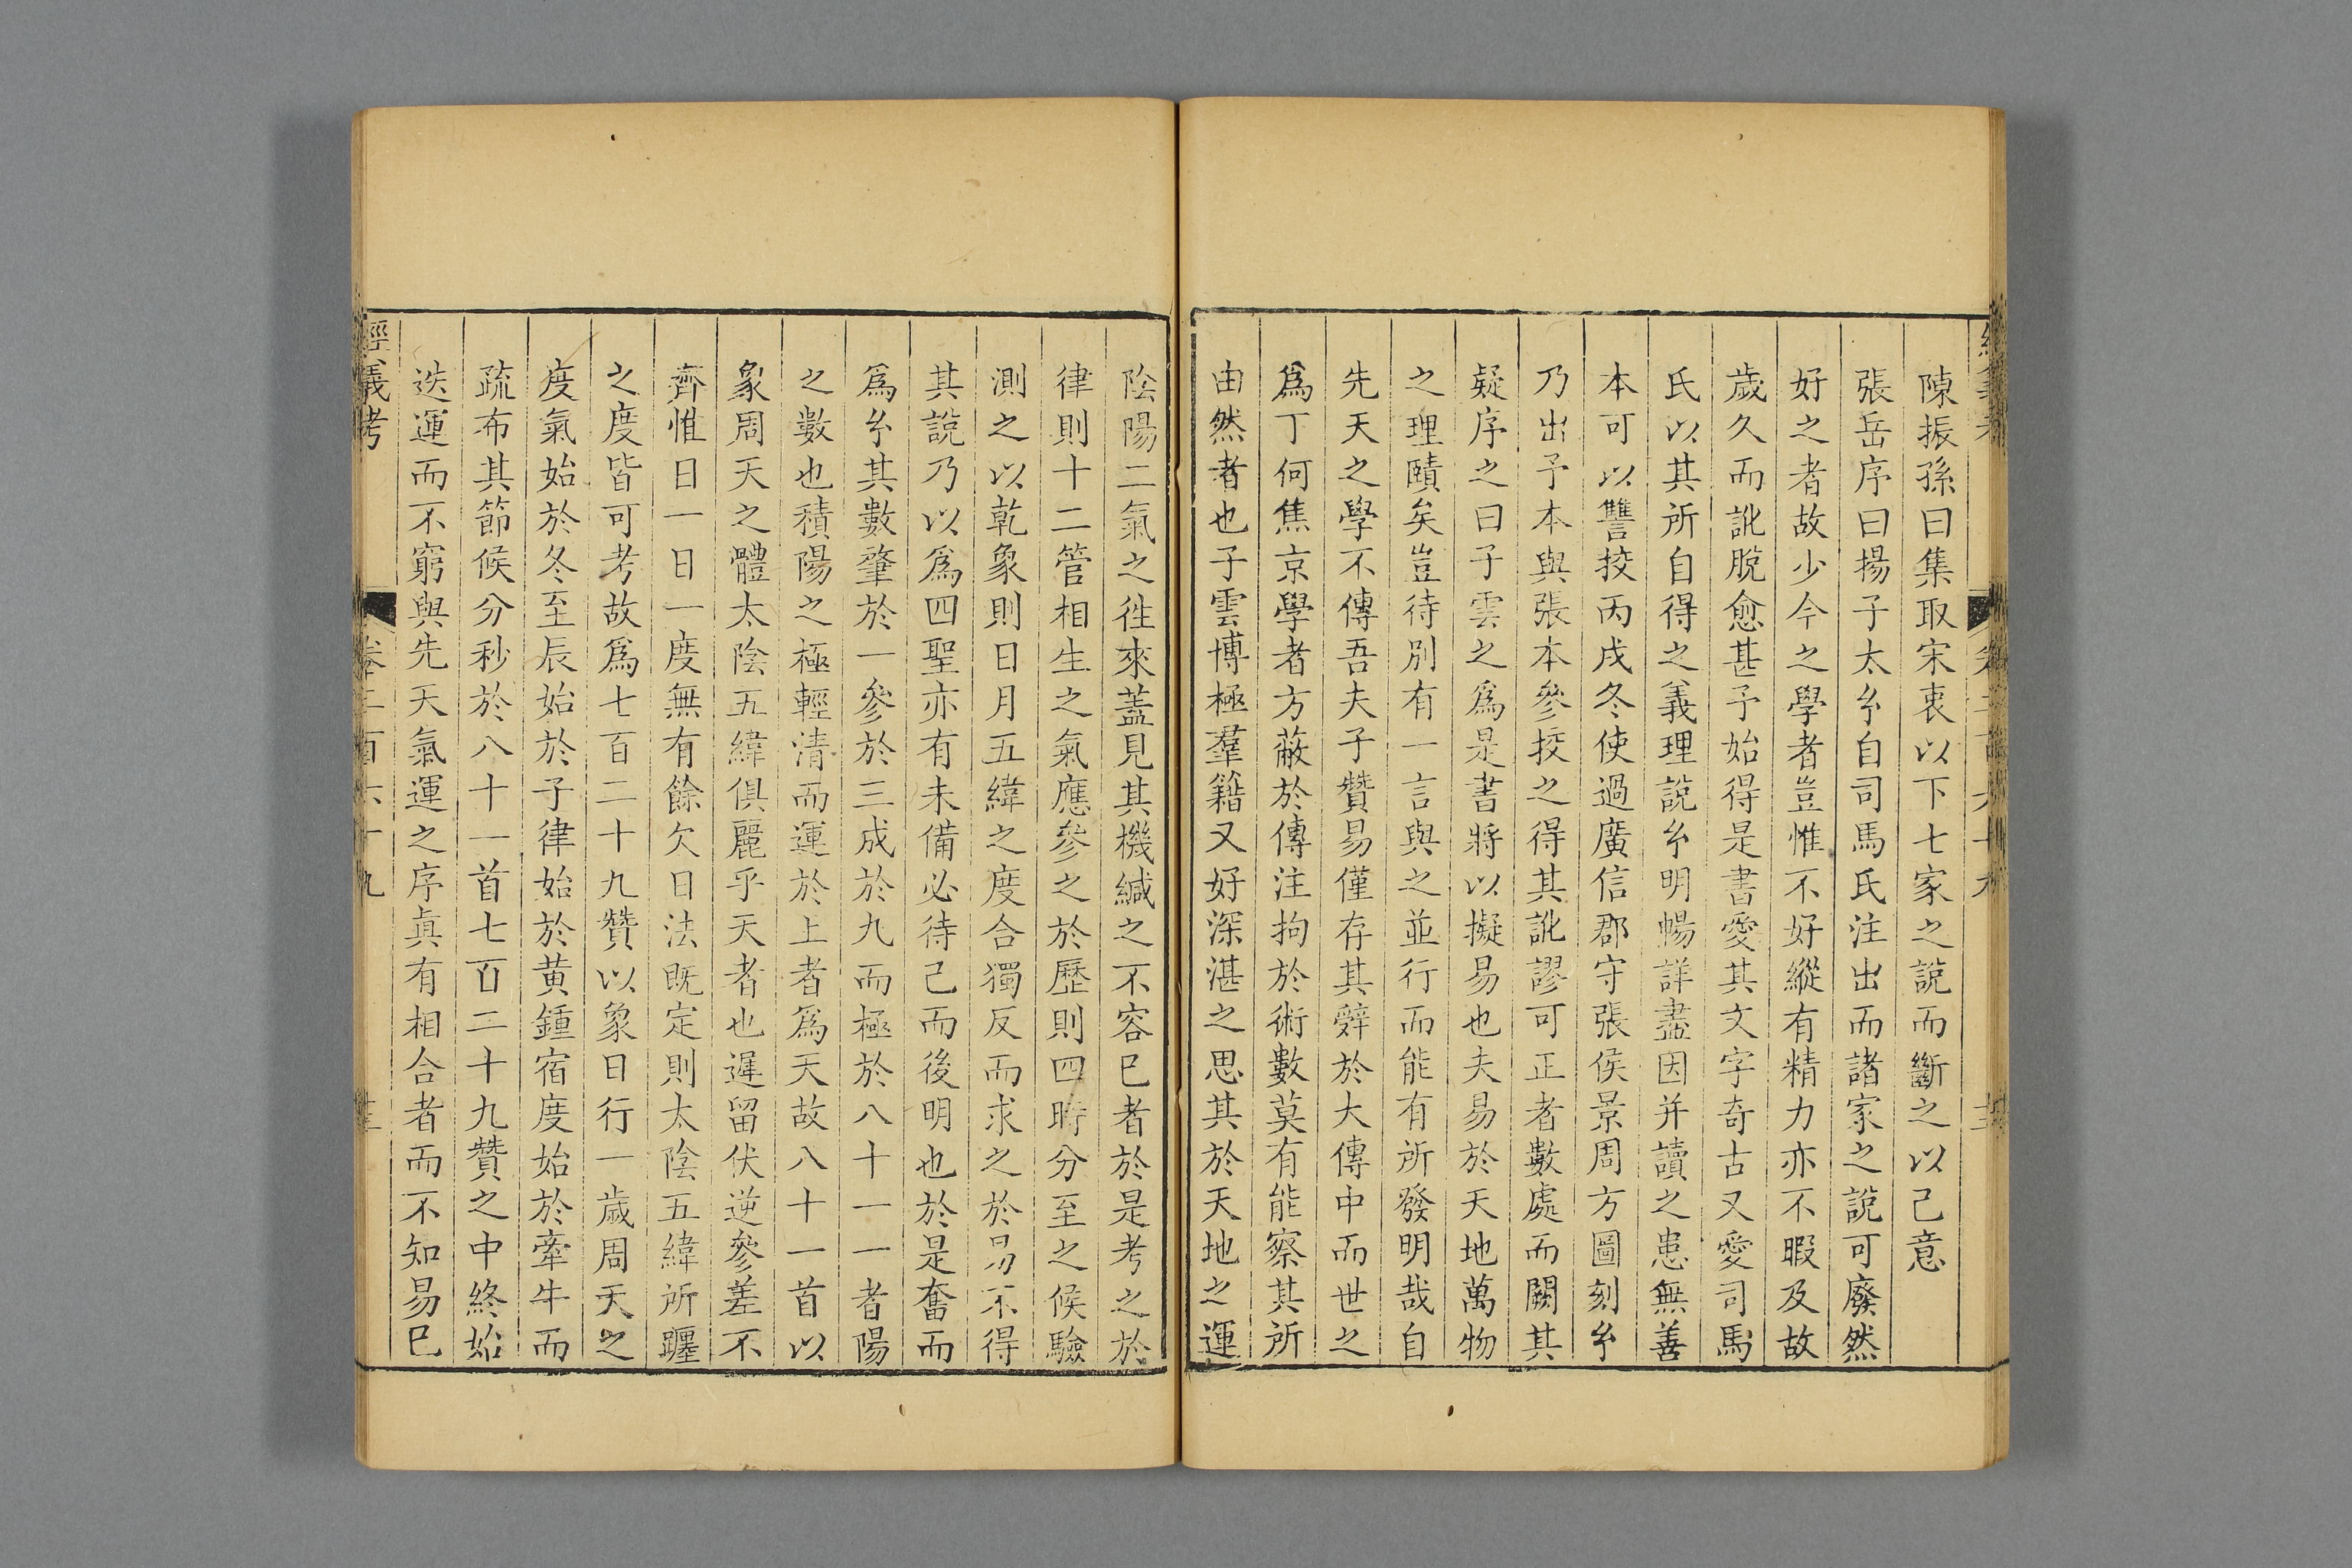 陳振孫曰集取宋衷以下七家之說而斷之以己意
張岳序曰揚子太𤣥自司馬氏注出而諸家之說可廢然
好之者故少今之學者豈惟不好縱有精力亦不暇及故
歲久而訛脫愈甚予始得是書愛其文字奇古又愛司馬
氏以其所自得之義理說𤣥明暢詳盡因并讀之患無善
本可以讐挍丙戌冬使過廣信郡守張侯景周方圖刻𤣥
乃出予本與張本參挍之得其訛謬可正者數處而闕其
疑序之曰子雲之爲是書將以擬易也夫易於天地萬物
之理賾矣豈待別有一言與之並行而能有所發明哉自
先天之學不傳吾夫子贊易僅存其辭於大傳中而世之
爲丁何焦京學者方蔽於傳注拘於術數莫有能察其所
由然者也子雲博極羣籍又好深湛之思其於天地之運
陰陽二氣之徃來蓋見其機緘之不容已者於是考之於
律則十二管相生之氣應參之於歷則四時分至之候驗
測之以乾象則日月五緯之度合獨反而求之於易不得
其說乃以爲四聖亦有未備必待己而後明也於是奮而
爲𤣥其數肇於一參於三成於九而極於八十一一者陽
之數也積陽之極輕清而運於上者爲天故八十一首以
象周天之體太陰五緯俱麗乎天者也遲留伏逆參差不
齊惟日一日一度無有餘欠日法既定則太陰五緯所躔
之度皆可考故爲七百二十九贊以象日行一歲周天之
度氣始於冬至辰始於子律始於黃鍾宿度始於牽牛而
疏布其節候分秒於八十一首七百二十九贊之中終始
迭運而不窮與先天氣運之序眞有相合者而不知易已
經義考
卷二百六十九